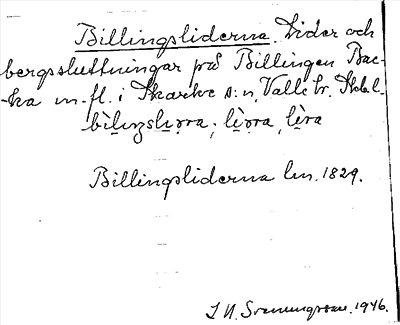 Billingsliderna. Lider och
bergssluttningar på Billingen Bac-
-ka m.fl. i Skarke s:n, Valle hr. Skbl.
bìlıŋslıo̯rra; lìo̯rra, lìra
Billingsliderna lm. 1829.
I. N. 1946.